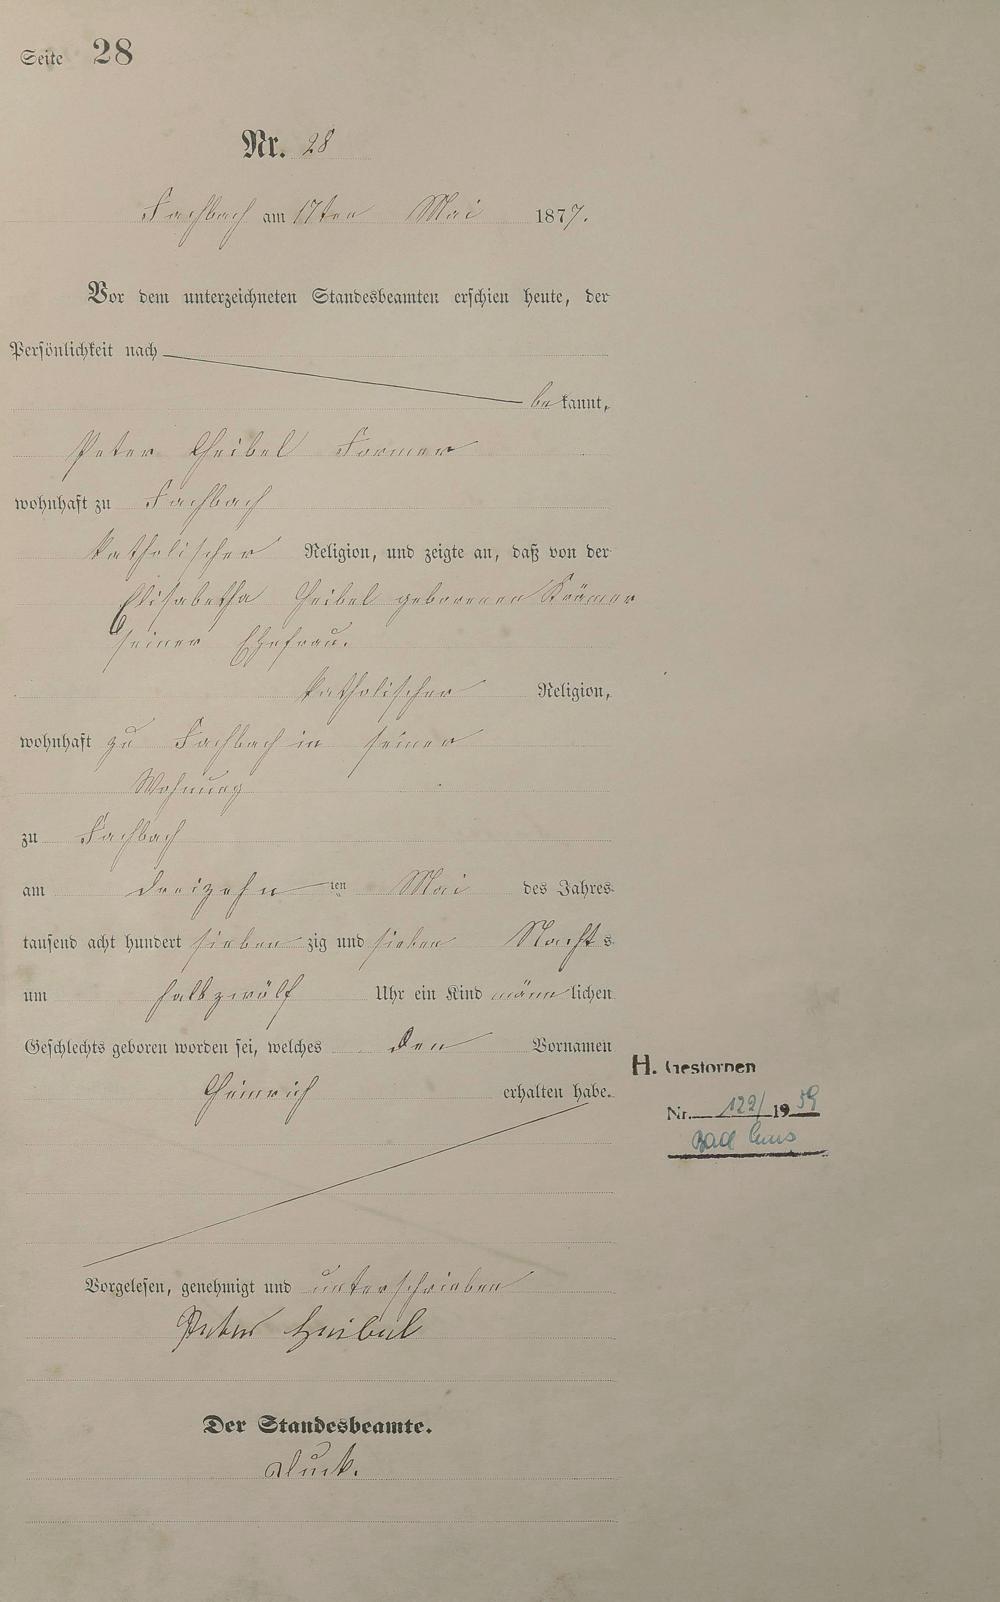 Seite 28
Nr. 28
Fachbach am 17ten Mai 1877.
Vor dem unterzeichneten Standesbeamten erschien heute, der
Persönlichkeit nach
bekannt,
Peter Heibel Former
wohnhaft zu Fachbach
katholischer Religion, und zeigte an, daß von der
Elisabetha Heibel geborenen Krämer
seiner Ehefrau.
katholischer Religion,
wohnhaft zu Fachbach in seiner
Wohnung
zu Fachbach
am dreizehn ten Mai des Jahres
tausend acht hundert sieben zig und sieben Nachts
um halb zwölf Uhr ein Kind männlichen
Geschlechts geboren worden sei, welches den Vornamen
Heinrich erhalten habe.
H. Gestorben
Nr. 122/1959
Bad Ems
Vorgelesen, genehmigt und unterschrieben
Peter Heibel
Der Standesbeamte.